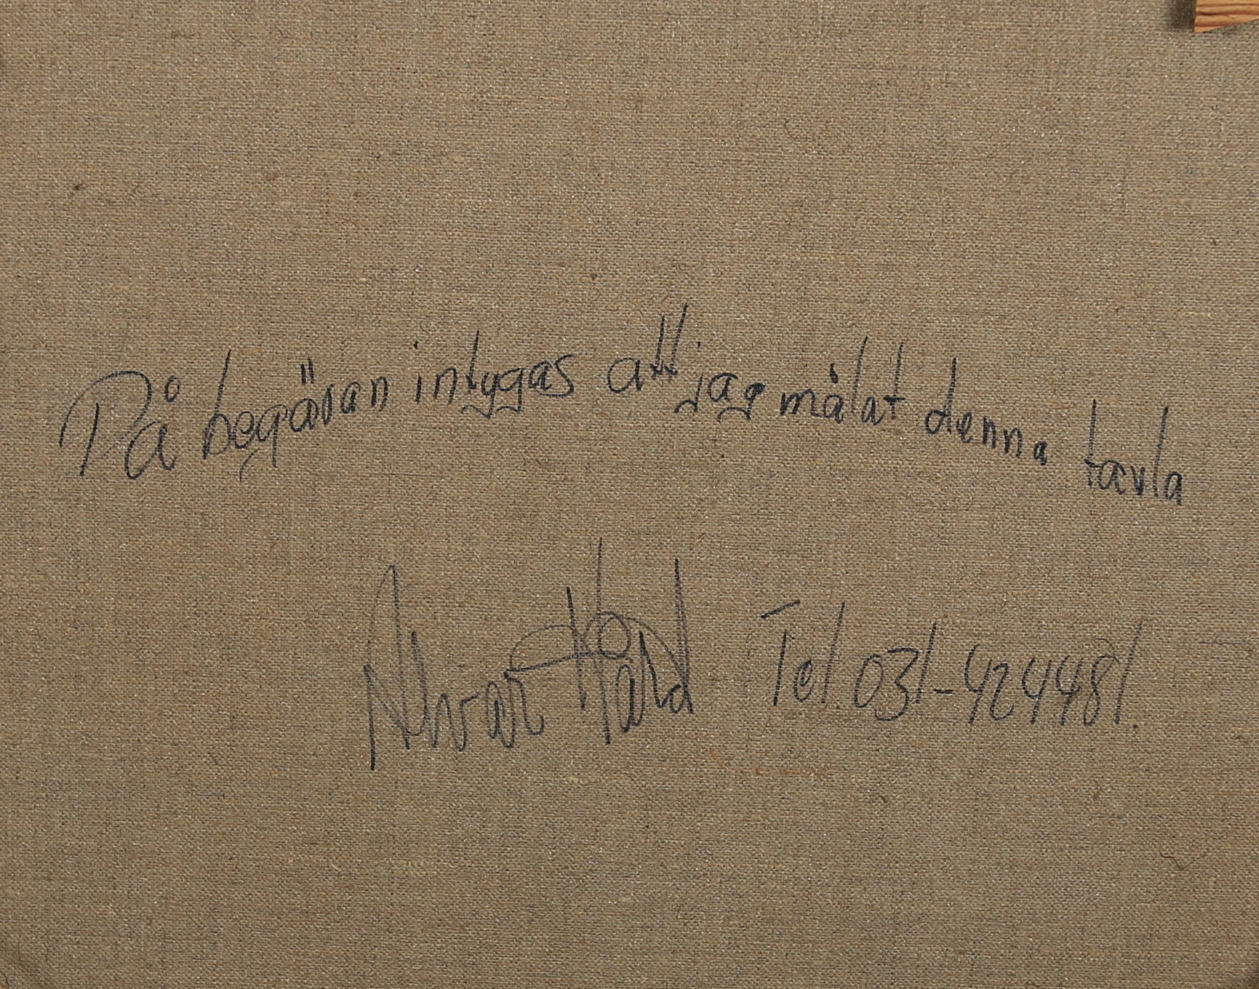 På begäran intygas att jag målat denna tavla
Alvar Hård Tel. 031-424481.